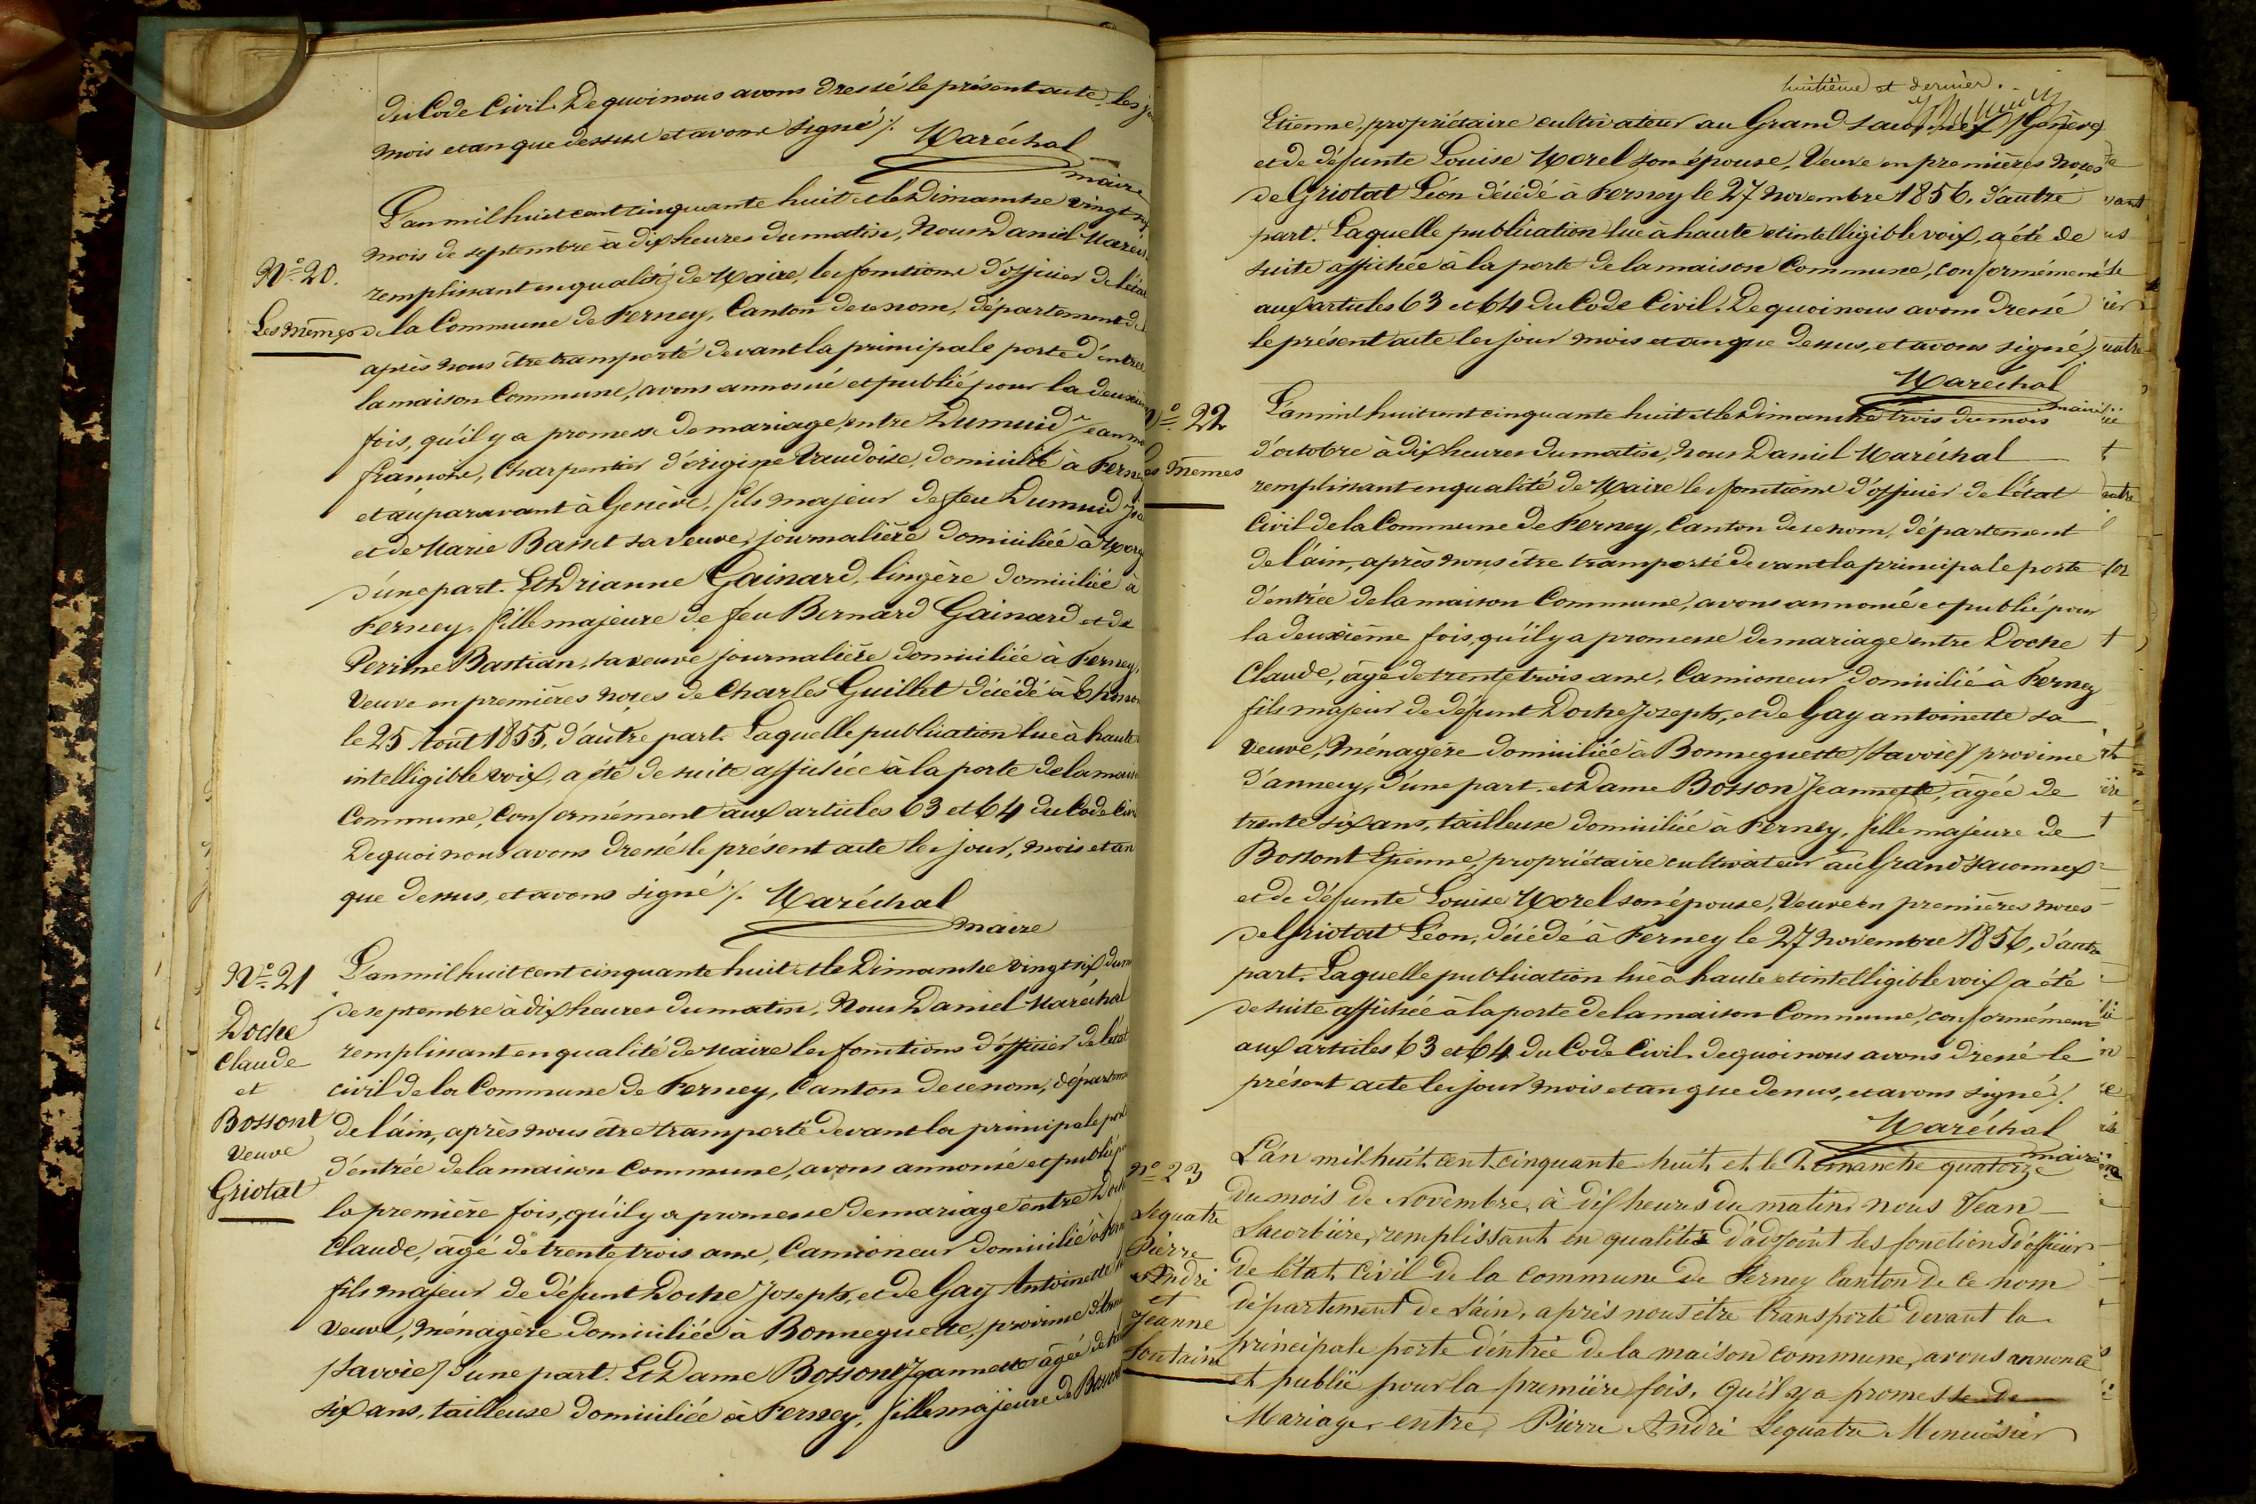 du Code Civil. De quoi nous avons dressé le présent acte, les
mois et an que dessus et avons signé /. Maréchal
maire
L'an mil huit cent cinquante huit et le Dimanche vingt
mois de septembre à dix heures du matin, Nous Daniel Maréch
N° 20.
remplissant en qualité de Maire, les fonctions d'officier de l'état
Les mêmes
de la Commune de Ferney, Canton de ce nom, département de
après nous être transporté devant la principale porte d'entrée
la maison Commune, avons annoncé et publié pour la deuxièm
fois, qu'il y a promesse de mariage, entre Dumuid Jean
françois, Charpentier d'origine Vaudoise, domicilié à Ferney
et auparavant à Genève, fils majeur de feu Dumuid
et de Marie Basset sa veuve, journalière domiciliée à
d'une part. Et Drianne Gainard, lingère domiciliée à
Ferney, fille majeure de feu Bernard Gainard et de
Perrine Bastian, sa veuve journalière domiciliée à Ferney,
Veuve en premières noces de Charles Guillet décédé à Thonon
le 25 Août 1855, d'autre part. Laquelle publication lue à haute
intelligible voix, a été de suite affichée à la porte de la mais
Commune, Conformément aux articles 63 et 64 du Code Civ
De quoi nous avons dressé le présent acte les jour, mois et an
que dessus, et avons signé /. Maréchal
maire
N° 21
Doche
Claude
et
Bossont
Veuve
Griotat
L'an mil huit cent cinquante huit et le Dimanche vingt six du m
de septembre à dix heures du matin, Nous Daniel Maréchal
remplissant en qualité de Maire les fonctions d'officier de l'état
civil de la Commune de Ferney, Canton de ce nom, départem
de l'ain, après nous être transporté devant la principale port
d'entrée de la maison Commune, avons annoncé et publié p
la première fois, qu'il y a promesse de mariage entre Doch
Claude, âgé de trente trois ans, Camioneur domicilié à
fils majeur de défunt Doche Joseph, et de Gay Antoinette
veuve, ménagère domiciliée à Bonneguette, province d'Ann
/Savoie/ d'une part. Et Dame Bossont Jeannette âgée de
six ans, tailleuse domiciliée à Ferney, fille majeure de
huitième et dernier.
Etienne, propriétaire cultivateur au Grand Saconnex /Genève/
et de défunte Louise Morel son épouse, Veuve en premières noces
de Griotat Léon décédé à Ferney le 27 novembre 1856, d'autre
part. Laquelle publication lue à haute et intelligible voix, a été de
suite affichée à la porte de la maison Commune, conformément
aux articles 63 et 64 du Code Civil. De quoi nous avons dressé
le présent acte les jour mois et an que dessus, et avons signé /.
Maréchal
maire
N° 22
Les mêmes
L'an mil huit cent cinquante huit et le Dimanche trois du mois
d'octobre à dix heures du matin, nous Daniel Maréchal
remplissant en qualité de Maire les fonctions d'officier de l'état
Civil de la Commune de Ferney, Canton de ce nom, département
de l'ain, après nous être transporté devant la principale porte
d'entrée de la maison Commune, avons annoncé et publié pour
la deuxième fois, qu'il y a promesse de mariage entre Doche
Claude, âgé de trente trois ans, Camioneur domicilié à Ferney
fils majeur de défunt Doche Joseph, et de Gay antoinette sa
veuve, ménagère domiciliée à Bonneguette /Savoie/ province
d'annecy, d'une part. et Dame Bosson Jeannette, âgée de
trente six ans, tailleuse domiciliée à Ferney, fille majeure de
Bossont Etienne, propriétaire cultivateur au Grand Saconnex
et de défunte Louise Morel son épouse, Veuve en premières noces
de Griotat Léon, décédé à Ferney le 27 novembre 1856, d'autre
part. Laquelle publication lue à haute et intelligible voix a été
de suite affichée à la porte de la maison Commune, conformément
aux articles 63 et 64 du Code Civil. de quoi nous avons dressé le
présent acte les jour mois et an que dessus, et avons signé /.
Maréchal
maire
N° 23
Lequatre
Pierre
André
et
Jeanne
Fontaine
L'an mil huit cent cinquante huit et le Dimanche quatorze
du mois de Novembre, à dix heures du matin nous Jean
Lacorbière, remplissant en qualité d'adjoint les fonctions d'officier
de l'état civil de la commune de Ferney Canton de ce nom
département de l'ain, après nous être transporté devant la
principale porte d'entrée de la maison commune, avons annoncé
et publié pour la première fois, qu'il y a promesse de
Mariage entre, Pierre André Lequatre Menuisier